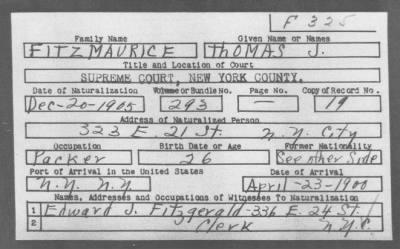 F 325
Family Name Given Name or Names
FITZMAURICE THOMAS J.
Title and Location of Court
SUPREME COURT, NEW YORK COUNTY.
Date of Naturalization Volume or Bundle No. Page No. Copy of Record No.
Dec-20-1905 293 — 19
Address of Naturalized Person
323 E. 21 St. N.Y. City
Occupation Birth Date or Age Former Nationality
Packer 26 See other Side
Port of Arrival in the United States Date of Arrival
N.Y. N.Y. April-23-1900
Names, Addresses and Occupations of Witnesses To Naturalization
1 Edward J. Fitzgerald-336 E. 24 St.
2 Clerk N.Y.C.